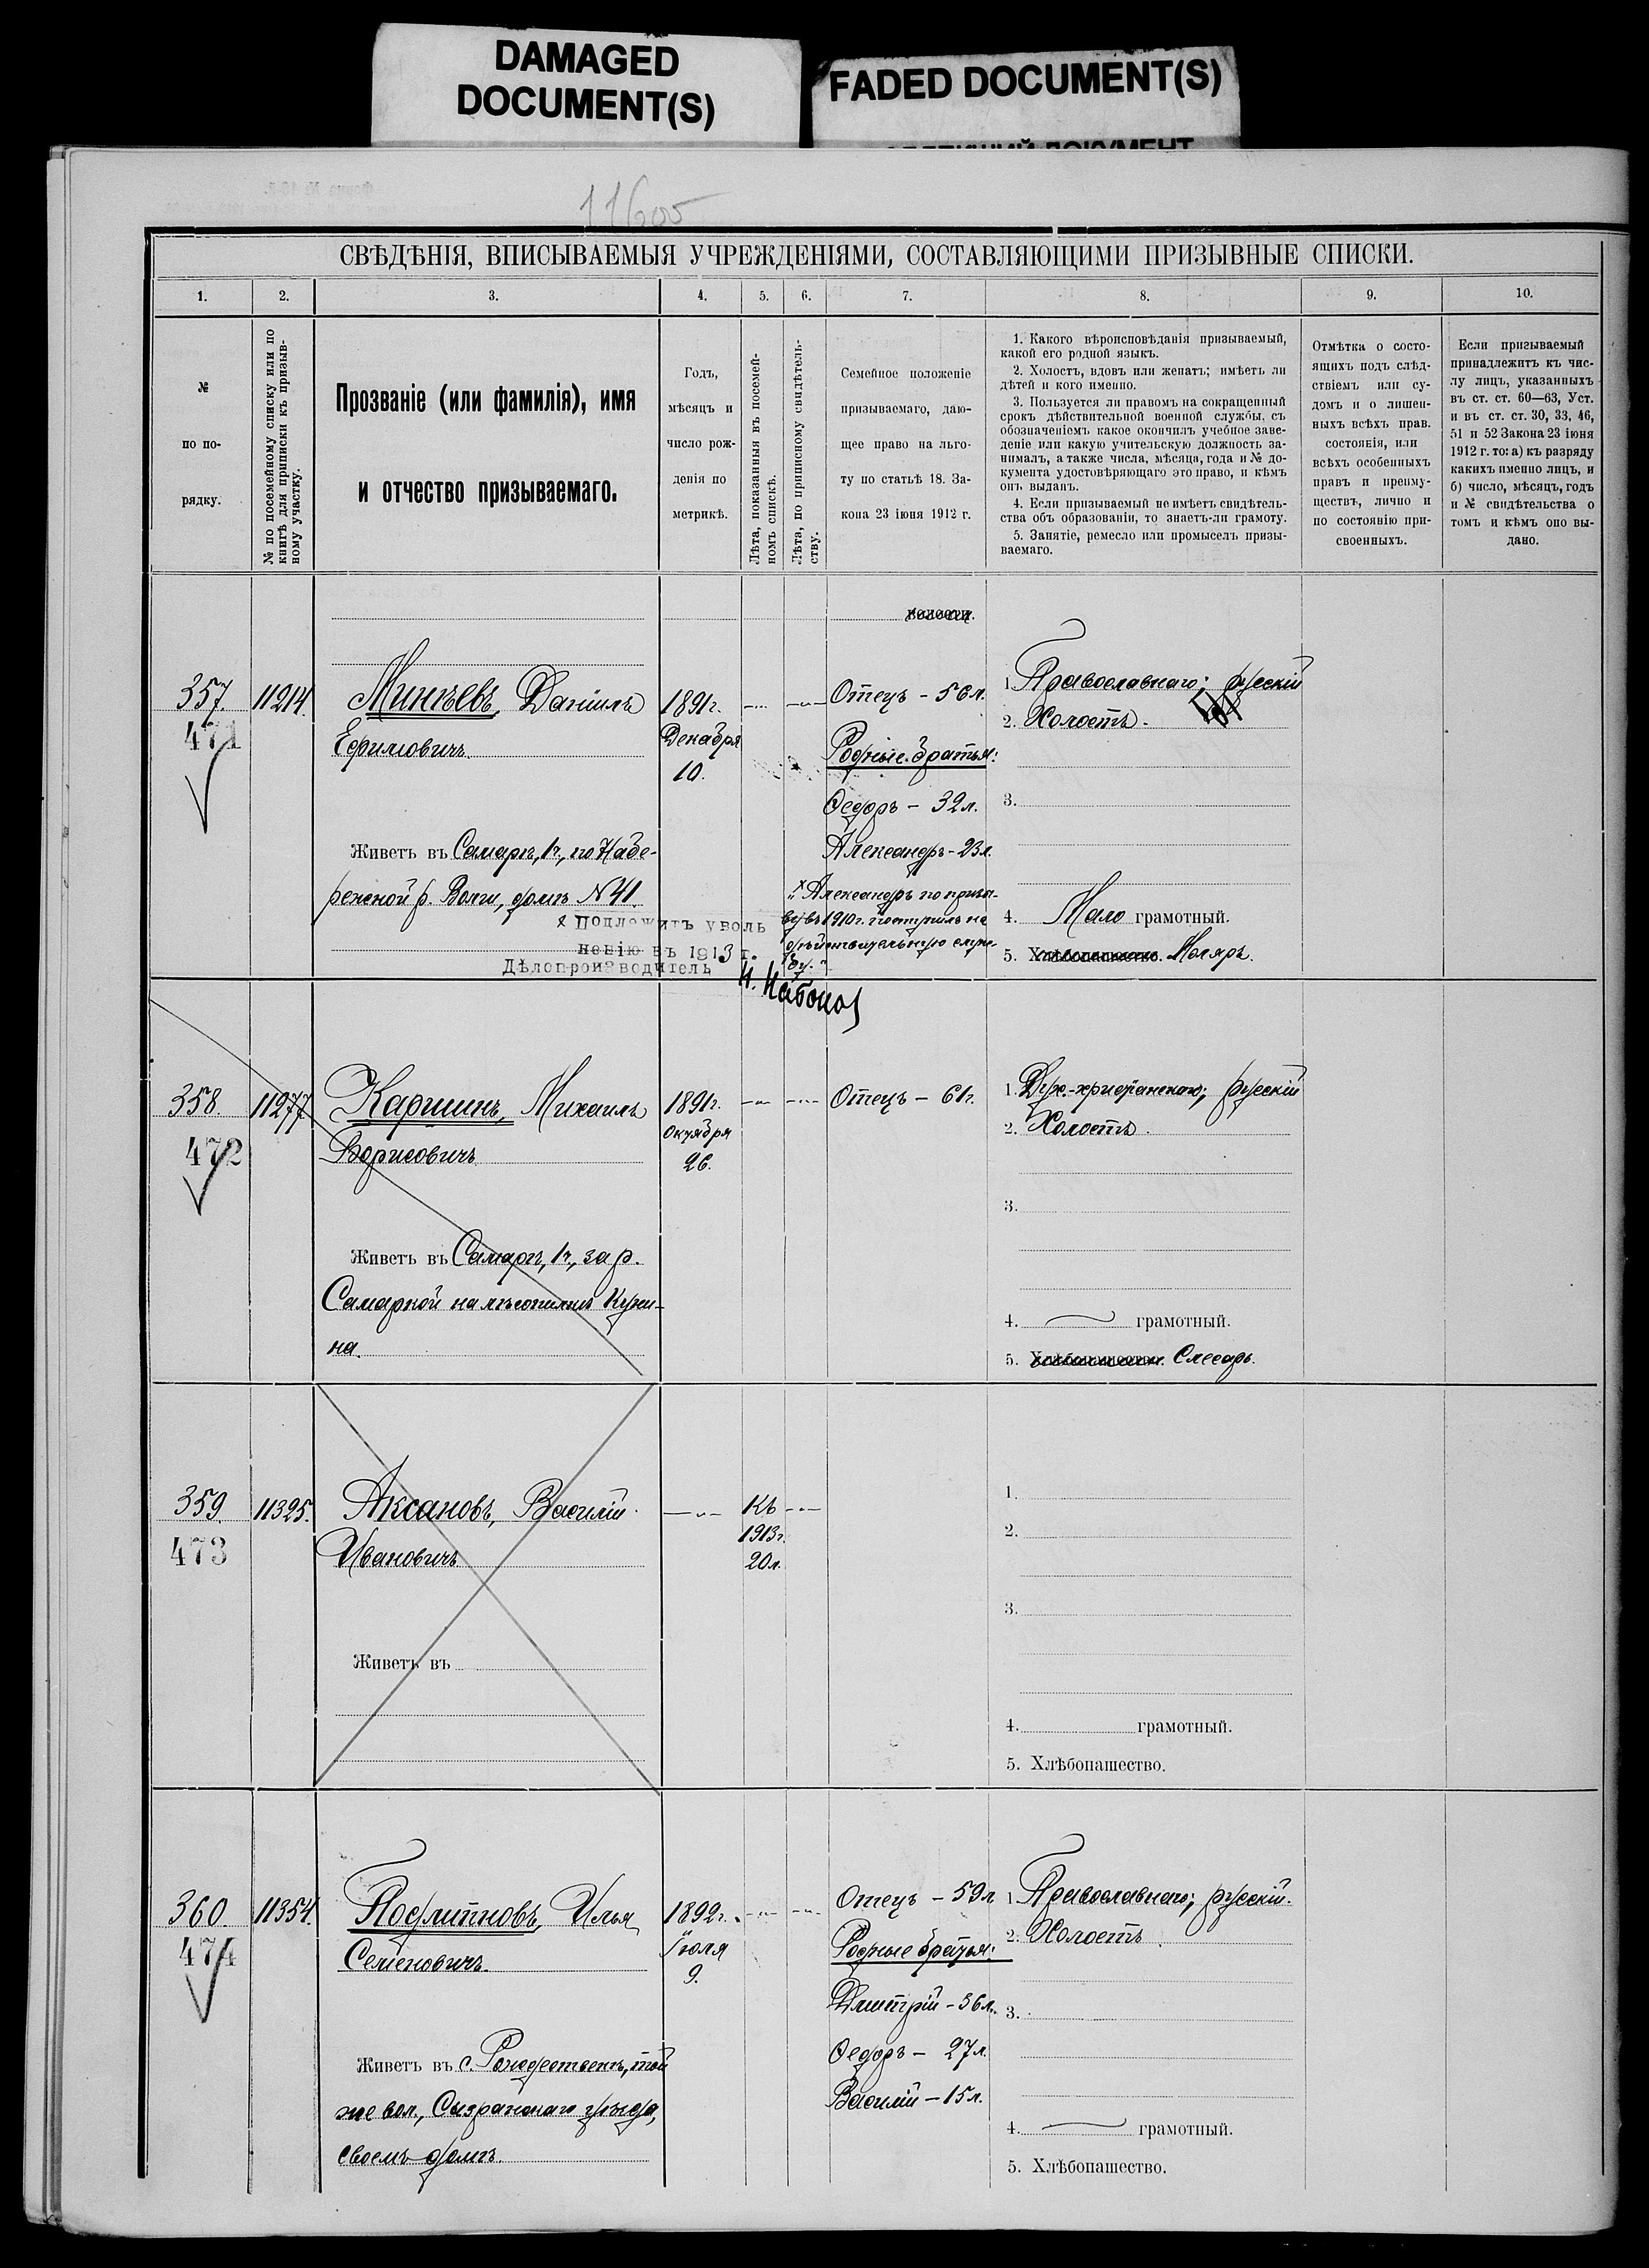 DAMAGED
DOCUMENT(S)
FADED DOCUMENT(S)
11605
СВѢДѢНІЯ, ВПИСЫВАЕМЫЯ УЧРЕЖДЕНІЯМИ, СОСТАВЛЯЮЩИМИ ПРИЗЫВНЫЕ СПИСКИ.
1.
2.
3.
4.
5.
6.
7.
8.
9.
10.
№
по по-
рядку.
№ по посемейному списку или по
книгѣ для приписки къ призыв-
ному участку.
Прозваніе (или фамилія), имя
и отчество призываемаго.
Годъ,
мѣсяцъ и
число рож-
денія по
метрикѣ.
Лѣта, показанныя въ посемей-
номъ спискѣ.
Лѣта, по приписному свидѣтель-
ству.
Семейное положеніе
призываемаго, даю-
щее право на льго-
ту по статьѣ 18. За-
кона 23 іюня 1912 г.
1. Какого вѣроисповѣданія призываемый,
какой его родной языкъ.
2. Холостъ, вдовъ или женатъ; имѣетъ ли
дѣтей и кого именно.
3. Пользуется ли правомъ на сокращенный
срокъ дѣйствительной военной службы, съ
обозначеніемъ какое окончилъ учебное заве-
деніе или какую учительскую должность за-
нималъ, а также числа, мѣсяца, года и № до-
кумента удостовѣряющаго это право, и кѣмъ
онъ выданъ.
4. Если призываемый не имѣетъ свидѣтель-
ства объ образованіи, то знаетъ-ли грамоту.
5. Занятіе, ремесло или промыселъ призы-
ваемаго.
Отмѣтка о состо-
ящихъ подъ слѣд-
ствіемъ или су-
домъ и о лишен-
ныхъ всѣхъ прав.
состоянія, или
всѣхъ особенныхъ
правъ и преиму-
ществъ, лично и
по состоянію при-
своенныхъ.
Если призываемый
принадлежитъ къ чис-
лу лицъ, указанныхъ
въ ст. ст. 60—63, Уст.
и въ ст. ст. 30, 33, 46,
51 и 52 Закона 23 іюня
1912 г. то: а) къ разряду
какихъ именно лицъ, и
б) число, мѣсяцъ, годъ
и № свидѣтельства о
томъ и кѣмъ оно вы-
дано.
волости.
357.
471
11214.
Минѣевъ, Даніилъ
Ефимовичъ.
Живетъ въ Самарѣ, 1ч., по Набе-
режной р. Волги, домъ № 41.
х Подлежитъ уволь
ненію въ 1913 г.
Дѣлопроизводитель
1891г.
Декабря
10.
Отецъ - 56л.
Родные братья:
Федоръ - 32л.
Александръ - 23л.
х Александръ по призы-
ву въ 1910г. поступилъ на
дѣйствительную служ-
бу."
1. Православнаго; русскій
2. Холостъ.
3.
4. Мало грамотный.
5. Хлѣбопашество. Маляръ.
358.
472
11277
Каршинъ, Михаилъ
Борисовичъ
Живетъ въ Самарѣ, 1ч., за р.
Самаркой на лѣсопилкѣ Кужи-
на.
1891г.
Октября
26.
Отецъ - 61г.
1. Дух.-христианскаго; русскій
2. Холостъ.
3.
4. грамотный.
5. Хлѣбопашество. Слесарь.
359.
473
11325.
Аксановъ, Василій
Ивановичъ
Живетъ въ
Къ
1913г.
20л.
1.
2.
3.
4. грамотный.
5. Хлѣбопашество.
360.
474
11354.
Подлипновъ, Илья
Семеновичъ.
Живетъ въ с. Рождественѣ, той
же вол., Сызранскаго уѣзда,
своемъ домѣ.
1892г.
Іюля
9.
Отецъ - 59л
Родные братья:
Дмитрій - 36л.
Федоръ - 27л.
Василій - 15л.
1. Православнаго; русскій.
2. Холостъ
3.
4. грамотный.
5. Хлѣбопашество.